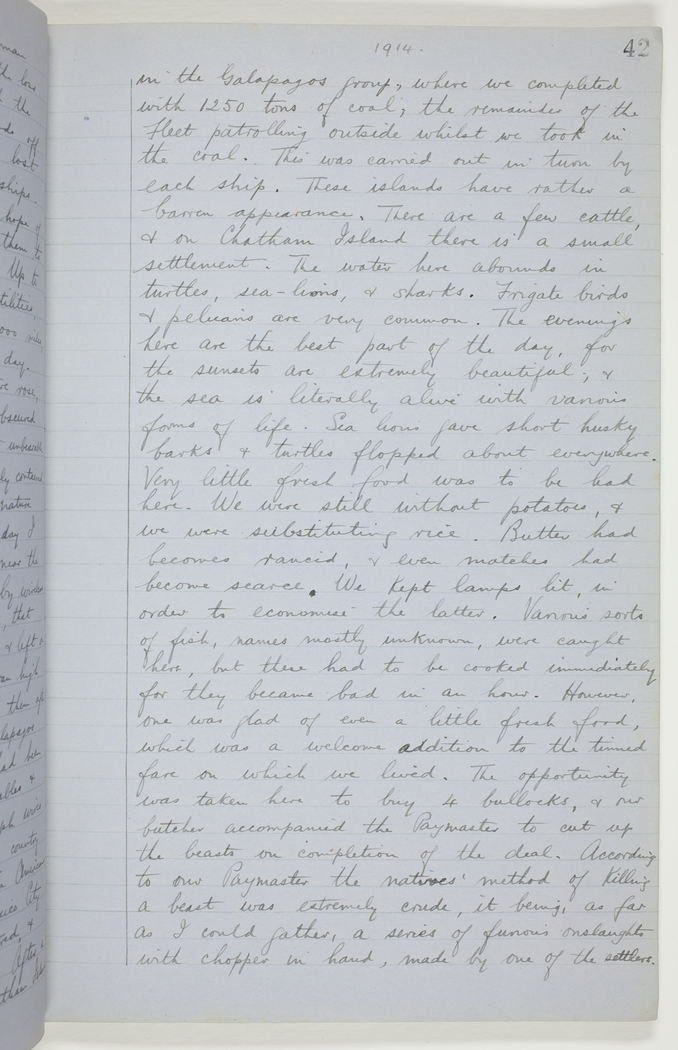 1914.
42
in the Galapagos group, where we completed
with 1250 tons of coal; the remainder of the
Fleet patrolling outside whilst we took in
the coal. This was carried out in turn by
each ship. These islands have rather a
barren appearance. There are a few cattle,
& on Chatham Island there is a small
settlement. The water here abounds in
turtles, sea-lions, & sharks. Frigate birds
& pelicans are very common. The evenings
here are the best part of the day, for
the sunsets are extremely beautiful; &
the sea is literally alive with various
forms of life. Sea lions gave short husky
barks & turtles flopped about everywhere.
Very little fresh food was to be had
here. We were still without potatoes, &
we were substituting rice. Butter had
becomes rancid, & even matches had
become scarce. We kept lamps lit, in
order to economise the latter. Various sorts
of fish, names mostly unknown, were caught
here, but these had to be cooked immediately
for they became bad in an hour. However,
one was glad of even a little fresh food,
which was a welcome addition to the tinned
fare on which we lived. The opportunity
was taken here to buy 4 bullocks, & our
butcher accompanied the Paymaster to cut up
the beasts on completion of the deal. According
to our Paymaster the natives' method of killing
a beast was extremely crude, it being, as far
as I could gather, a series of furious onslaughts
with chopper in hand, made by one of the settlers.